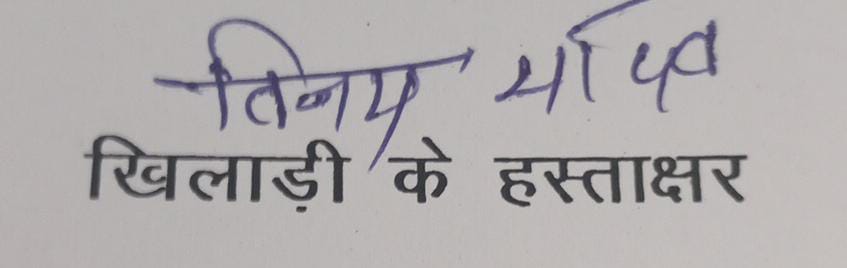 विनय यादव
खिलाड़ी के हस्ताक्षर